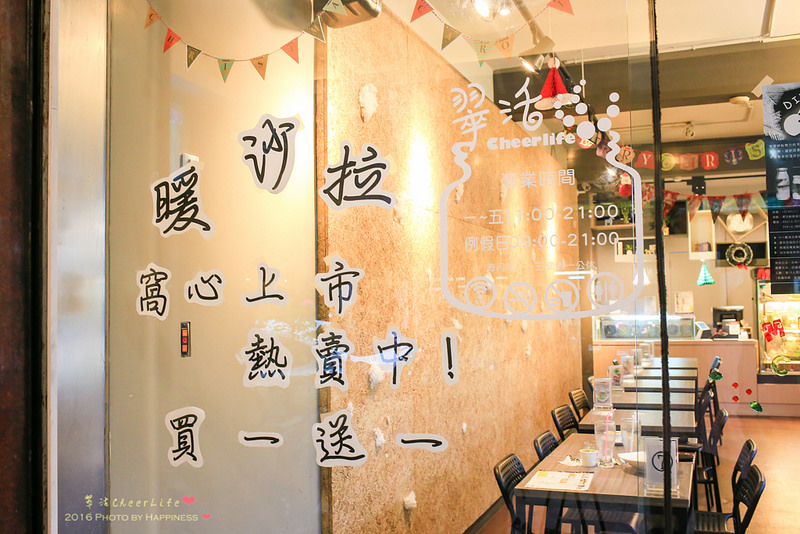 暖沙拉
窩心上市
熱賣中！
買一送一
翠活
Cheerlife
營業時間
一~五11:00-21:00
例假日09:00-21:00
翠活CheerLife
2016 Photo by Happiness
7